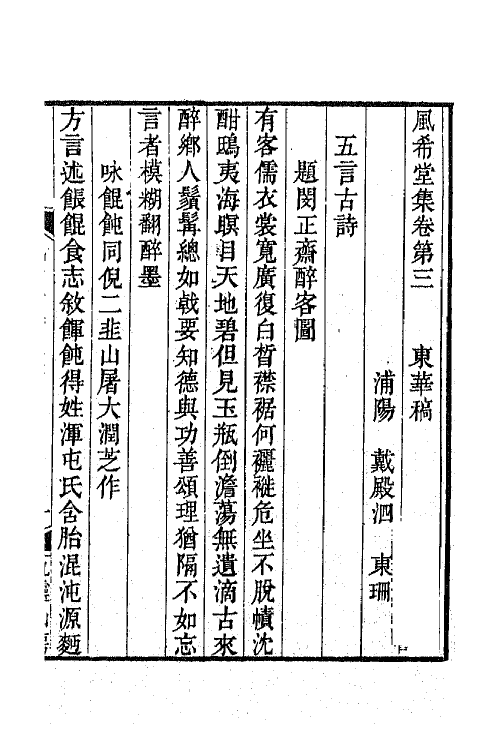 風希堂集卷第三　東華稿
浦陽　戴殿泗　東珊
五言古詩
題閔正齋醉客圖
有客儒衣裳寬廣復白皙襟裾何襹褷危坐不脫幘沈
酣鴟夷海瞑目天地碧但見玉瓶倒澹蕩無遺滴古來
醉鄉人鬚髯總如戟要知德與功善頌理猶隔不如忘
言者模糊翻醉墨
咏餛飩同倪二韭山屠大潤芝作
方言述餦餛食志敘餫飩得姓渾屯氏含胎混沌源麪